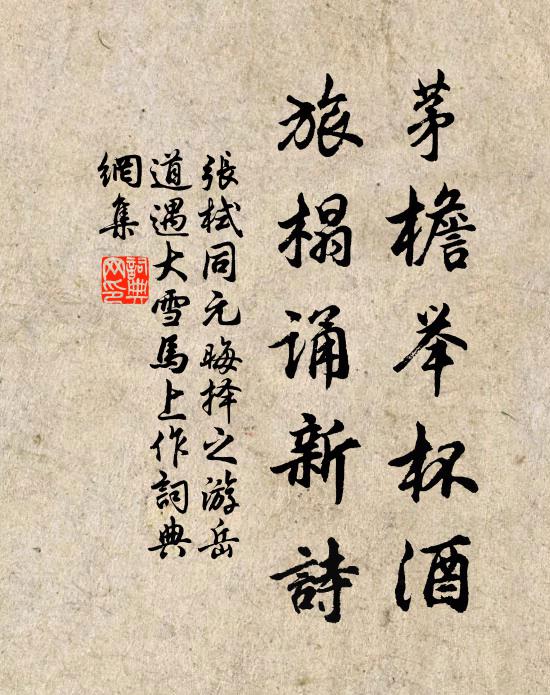 茅檐举杯酒
旅榻诵新詩
張栻同元晦择之游岳
道遇大雪馬上作詞典
網集
詞典網印